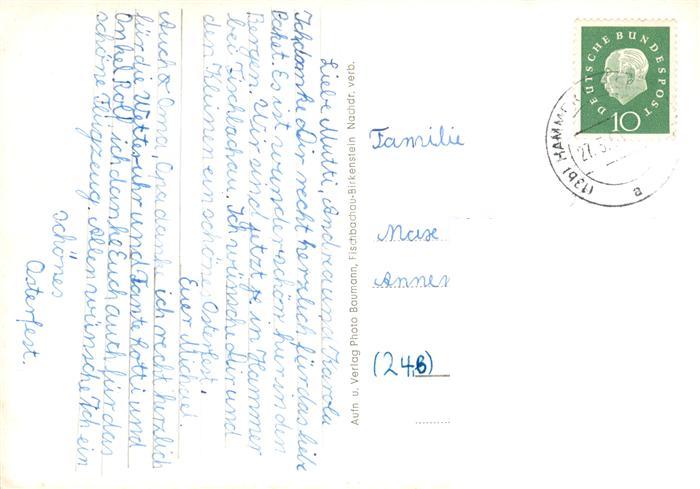 Liebe Mutti, Andrea und Karola
Ich danke Dir recht herzlich für das liebe
Paket. Es ist wunderschön hier in den
Bergen. Wir sind jetzt in Hammer
bei Fischbachau. Ich wünsche Dir und
den Kleinen ein schönes Osterfest.
Euer Michael.
Auch Oma, Opa danke ich recht herzlich
für die Wetteruhr und Tante Lotti und
Onkel Rolf ich danke Euch auch für das
schöne Flugzeug. Allen wünsche Ich ein
schönes
Osterfest.
Aufn. u. Verlag Photo Baumann, Fischbachau-Birkenstein Nachdr. verb.
DEUTSCHE BUNDESPOST
10
(13b) HAMMER
27.3.
a
Familie
(24b)